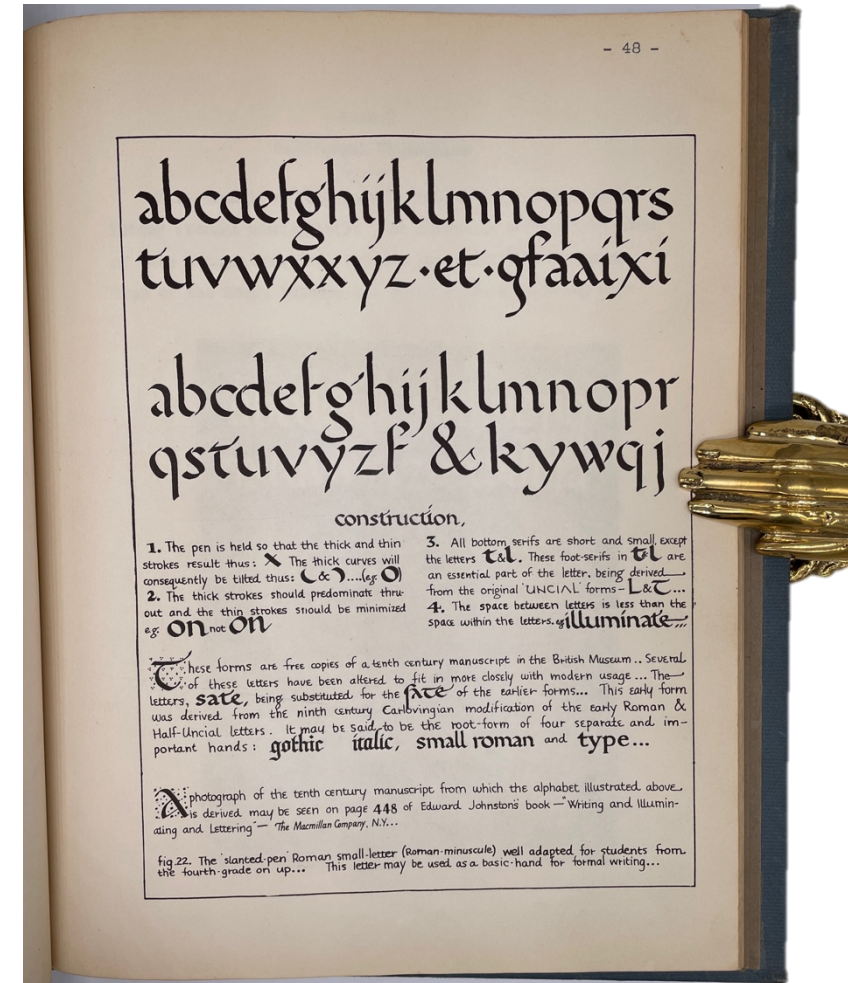 - 48 -
abcdefghijklmnopqrs
tuvwxxyz·et·gfaaixi
abcdefghijklmnopr
qstuvyzf & kywqj
construction,
1. The pen is held so that the thick and thin
strokes result thus: The thick curves will
consequently be tilted thus: ( & )....(eg. O)
2. The thick strokes should predominate thru-
out and the thin strokes should be minimized
eg. on not on
3. All bottom serifs are short and small, except
the letters t&l. These foot-serifs in t&l are
an essential part of the letter, being derived
from the original 'UNCIAL' forms - L&T...
4. The space between letters is less than the
space within the letters. eg. illuminate,,,
These forms are free copies of a tenth century manuscript in the British Museum.. Several
of these letters have been altered to fit in more closely with modern usage... The
letters, sate, being substituted for the ſate of the earlier forms... This early form
was derived from the ninth century Carlovingian modification of the early Roman &
Half-Uncial letters. It may be said to be the root-form of four separate and im-
portant hands: gothic italic, small roman and type...
A photograph of the tenth century manuscript from which the alphabet illustrated above
is derived may be seen on page 448 of Edward Johnston's book — "Writing and Illumin-
ating and Lettering" — The Macmillan Company, N.Y...
fig.22. The 'slanted-pen' Roman small-letter (Roman-minuscule) well adapted for students from
the fourth-grade on up... This letter may be used as a basic-hand for formal writing...